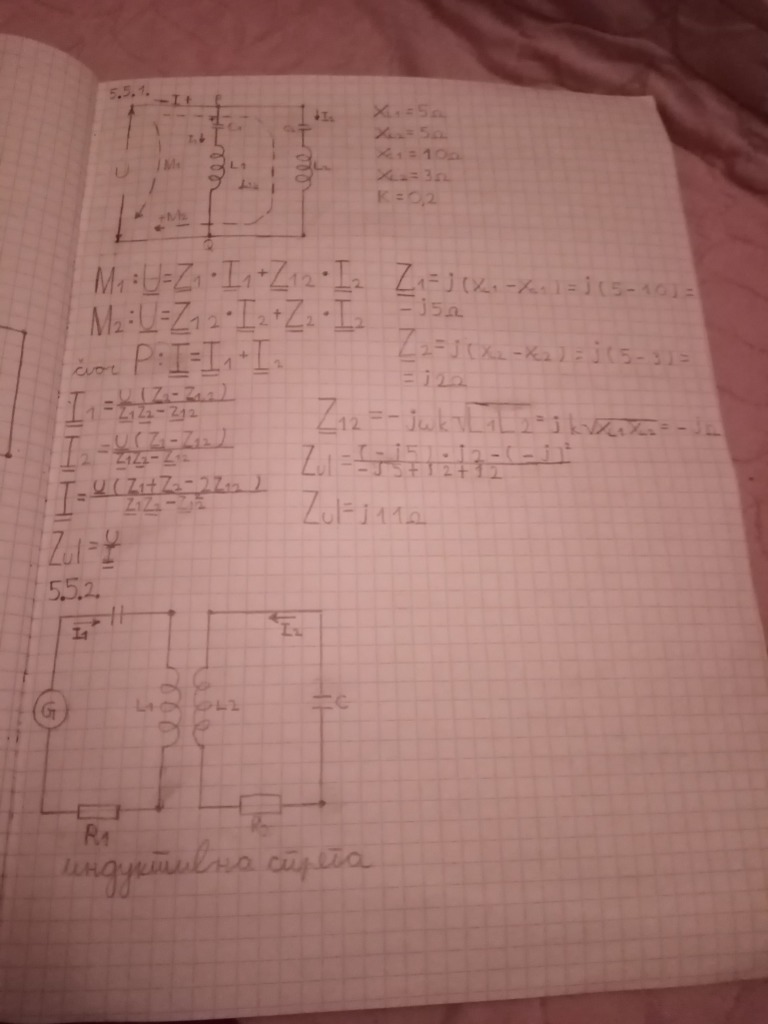 5.5.1.
I
P
I₂
C₁
I₁
U
M₁
L₁
L₂
M₂
Q
XL1=5Ω
XL2=5Ω
Xc1=10Ω
Xc2=3Ω
K=0,2
M₁:U=Z₁·I₁+Z₁₂·I₂
M₂:U=Z₁₂·I₂+Z₂·I₂
čvor P:I=I₁+I₂
Z₁=j(XL1-Xc1)=j(5-10)=
-j5Ω
Z₂=j(X₂-X₂)=j(5-3)=
=j2Ω
I₁=U(Z₂-Z₁₂)/Z₁Z₂-Z₁₂
I₂=U(Z₁-Z₁₂)/Z₁Z₂-Z₁₂
I=U(Z₁+Z₂-2Z₁₂)/Z₁Z₂-Z₁₂²
Zul=U/I
Z₁₂=-jωk√L₁L₂=jk√XL1XL2=-jΩ
Zul=(-j5)·j2-(-j)²/-j5+j2+j2
Zul=j11Ω
5.5.2.
I₁
I₂
G
L1
L2
C
R1
R₂
индуктивна спрега